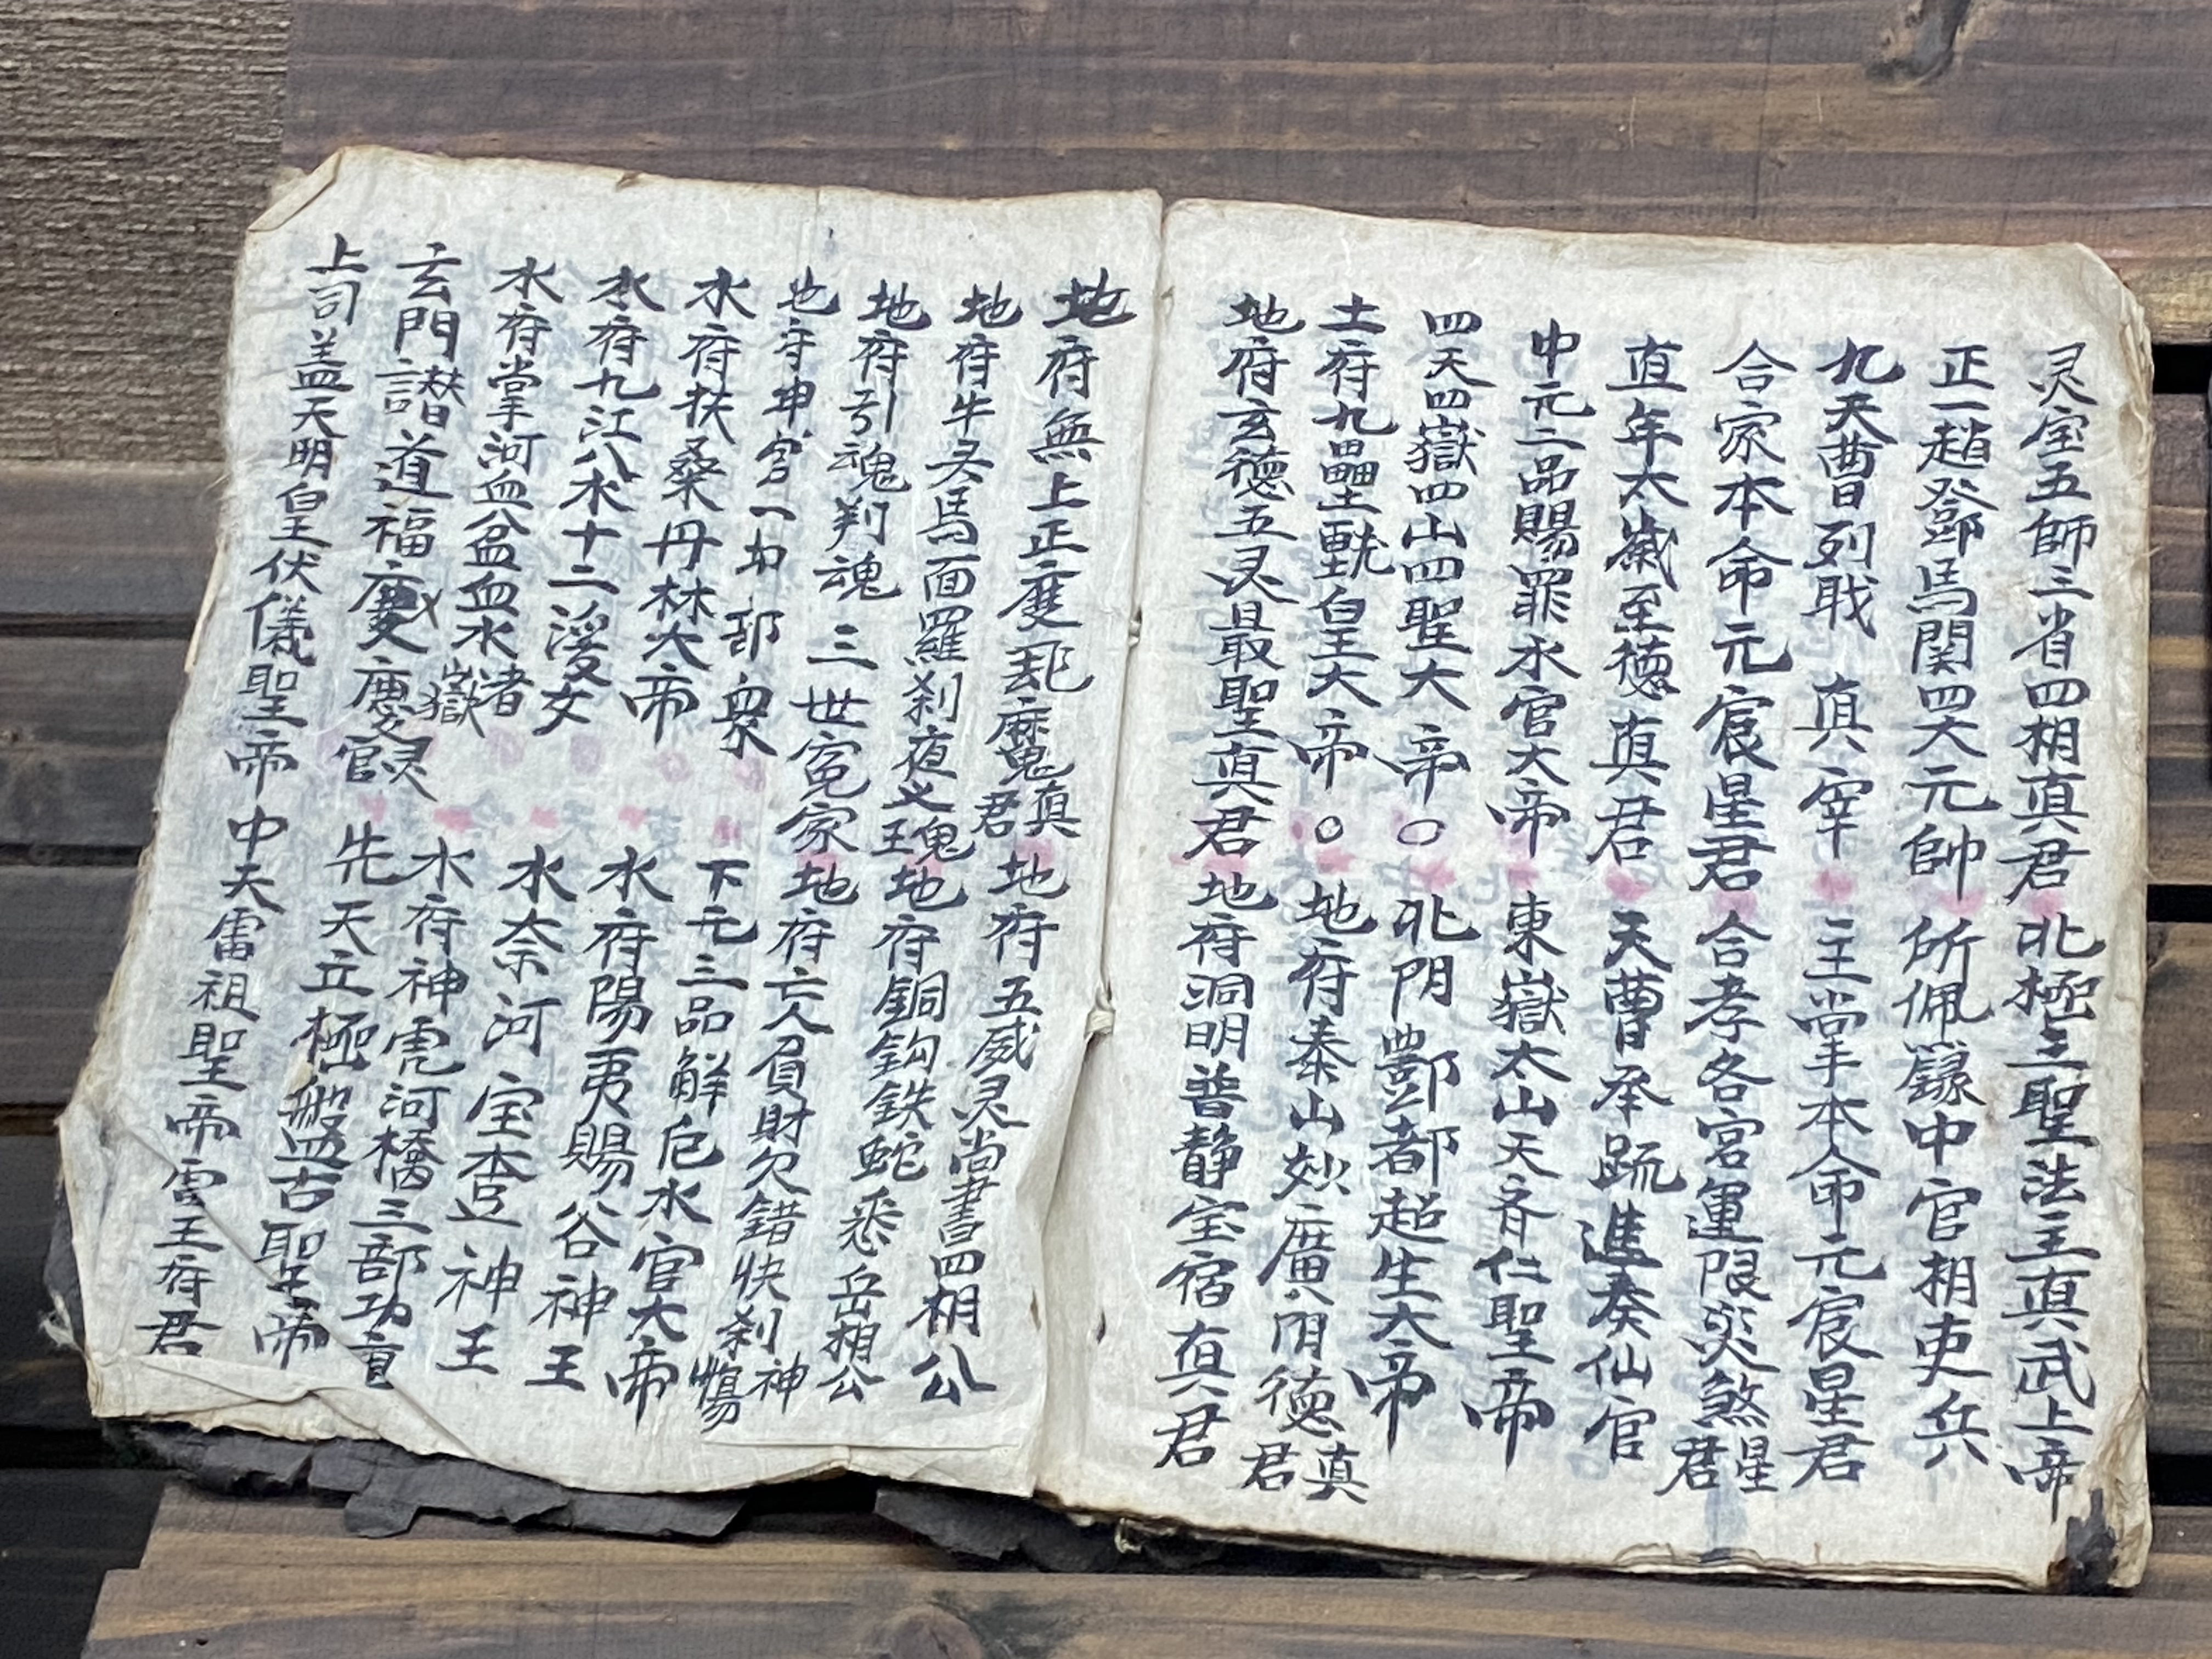 灵宝五師三省四相真君 北極三聖法主真武上帝
正一趙鄧馬関四大元帥 所佩籙中官相吏兵
九天曹列戝 真宰 主掌本命元宸星君
合家本命元宸星君 合孝各宮運限災煞星君
直年太歲至德真君 天曹承疏進奏仙官
中元二品賜罪水官大帝 東嶽太山天斉仁聖帝
四天四嶽四山四聖大帝○ 北阴酆都超生大帝
土府九壘皇大帝○ 地府泰山妙廣阴德真君
地府玄德五灵最聖真君 地府洞明普静宝宿真君
地府無上正度 魔真君 地府五威灵尚書四相公
地府牛头馬面羅刹夜义鬼王 地府銅鈎鉄蛇悉岳相公
地府引魂判魂 三世冤家 地府亡人負財欠錯快刹神惕
地府 一切部衆 下元三品解厄水官大帝
水府扶桑丹林大帝 水府陽夷賜谷神王
水府九江八水十二溪女 水奈河宝查神王
水府掌河血盆血水渚嶽 水府神虎河橋三部功
玄門譛道福慶 官灵 先天立極盤古聖帝
上司盖天明皇伏儀聖帝 中天雷祖聖帝 雷王府君